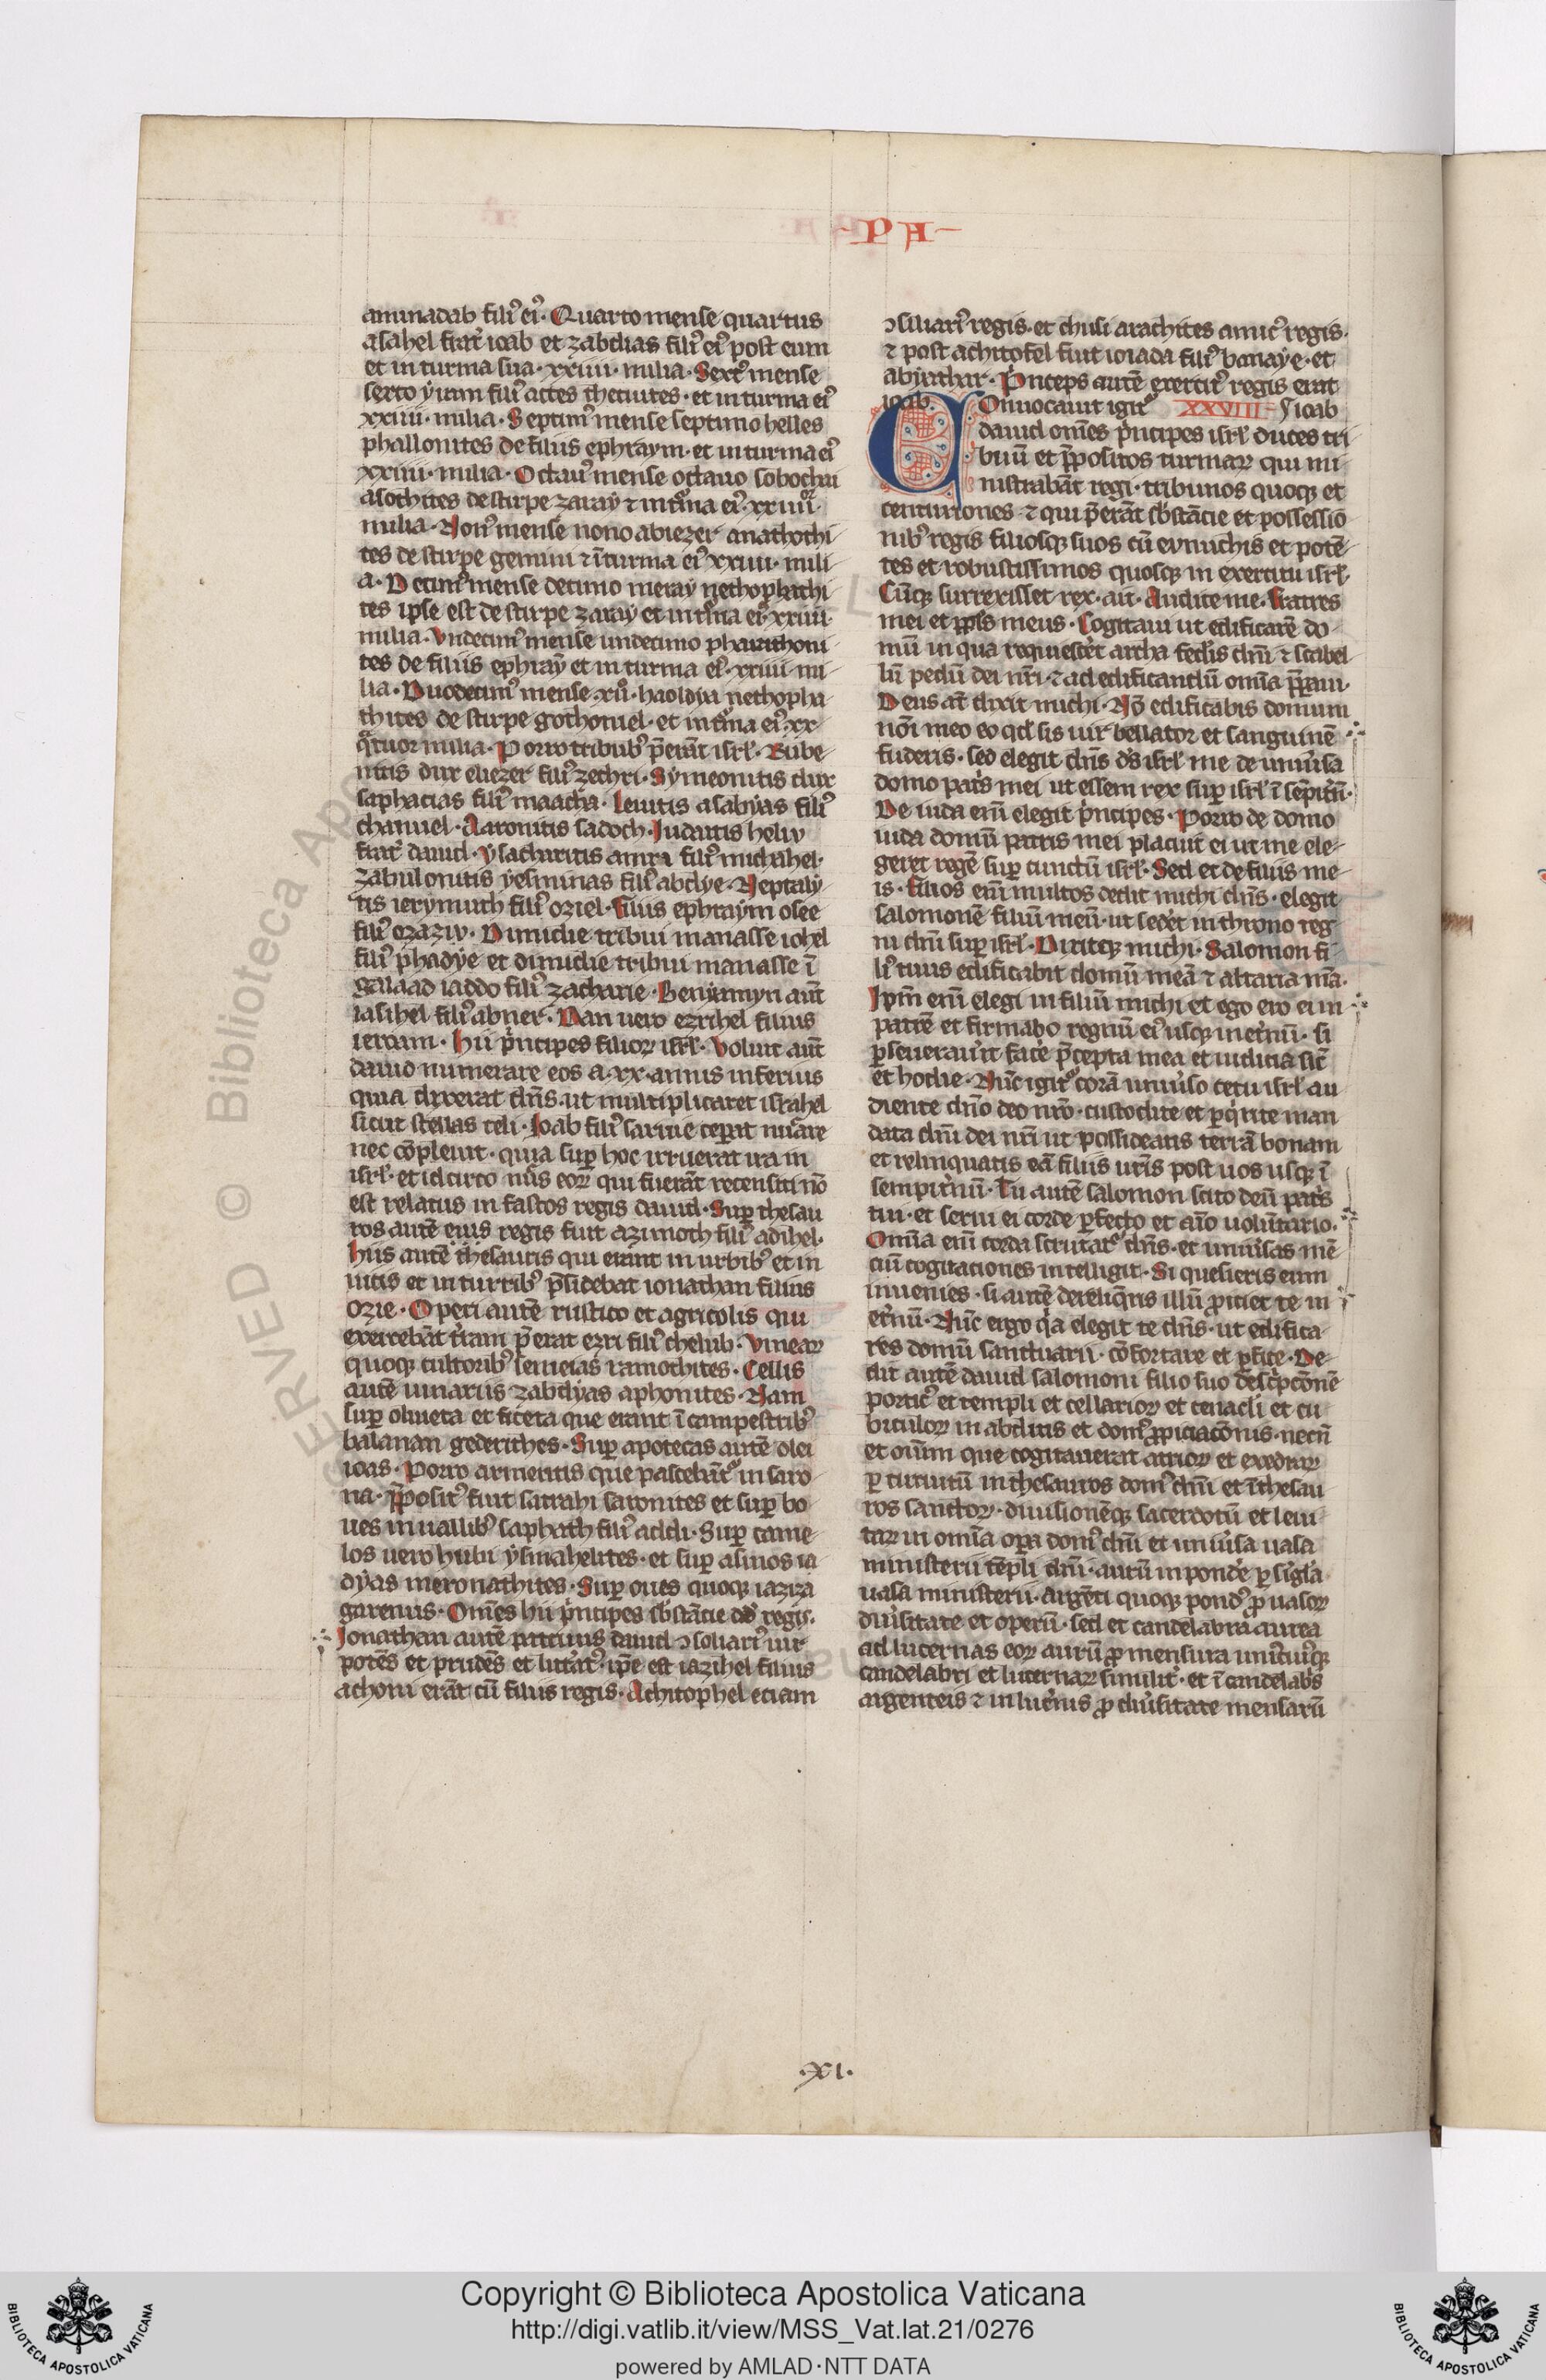 P A
aminadab filiꝰ eiꝰ. Quarto mense quartus
asahel frat̾ ioab et zabdias filiꝰ eiꝰ post eum
et in turma sua. xxiiii. milia. Sextꝰ mense
sexto yram filiꝰ actes thecuites. et in turma eiꝰ
xxiiii. milia. Septimꝰ mense septimo helles
phallonites de filiis ephraym. et in turma eiꝰ
xxiiii. milia. Octauꝰ mense octauo sobochai
asothites de stirpe zaray ⁊ in turma eiꝰ. xxiiiior.
milia. Nonꝰ mense nono abiezer anathothi
tes de stirpe gemini ⁊ ī turma eiꝰ xxiiii. mili
a. Decimꝰ mense decimo meray nethophathi
tes ipse est de stirpe zaray et in turma eiꝰ xxiiii.
milia. Vndecimꝰ mense undecimo pharathoni
tes de filiis ephraȳ et in turma eiꝰ. xxiiii mi
lia. Duodecimꝰ mense .xiiº. haoldya nethopha
thites de stirpe gothoniel. et in turma eiꝰ. xx
q̾tuor milia. Porro tribubꝰ p̄erāt isrl̾. Rube
nitis dux eliezer filiꝰ zechri. Symeonitis dux
saphacias filiꝰ maacha. Leuitis asabyas filiꝰ
chamuel. Aaronitis sadoch. Iudaitis heliv
frat̾ dauid. ysacharitis amri filiꝰ michahel.
zabulonitis yesminas filiꝰ abdye. Neptaly
tis ierymuth filiꝰ oziel. Filiis ephraym osee
filiꝰ ozaziv. Dimidie tribui manasse iohel
filiꝰ phadye et dimidie tribui manasse ī
galaad iaddo filiꝰ zacharie. Beniamyn aūt
iasihel filiꝰ abner. Dan uero ezrihel filius
ieroam. Hii p̾ncipes filioꝝ isrl̾. Voluit aūt
dauid numerare eos a .xx. annis inferius
quia dixerat dn̄s. ut multiplicaret israhel
sicut stellas celi. Ioab filiꝰ saruie ceperat nūare
nec cōpleuit. quia suꝑ hoc irruerat ira in
isrl̾. et idcirco nūs eoꝝ qui fuerāt recensiti nō
est relatus in fastos regis dauid. Suꝑ thesau
ros autē eius regis fuit azimoth filiꝰ adihel.
hiis autē thesauris qui erant in urbibꝰ et in
uicis et in turribꝰ p̄sidebat ionathan filius
ozie. Operi autē rustico et agricolis qui
exercebāt t̾ram p̄erat ezri filiꝰ chelub. Vineaꝝ
quoqꝫ cultoribꝰ semeias ramothites. Cellis
autē uinariis zabdyas aphonites. Nam
suꝑ oliueta et ficeta que erant ī campestribꝰ
balanan gederithes. Suꝑ apotecas autē olei
ioas. Porro armentis que pascebāt̾ in saro
na. p̄positꝰ fuit satrahi saronites et suꝑ bo
ues in uallibꝰ saphath filiꝰ addi. Suꝑ came
los uero hubil ysmahelites. et suꝑ asinos ia
dyas meronathites. Suꝑ oues quoqꝫ iaziza
garenus. Om̄es hii p̾ncipes sb̄stācie dd̾ regis.
Ionathan autē patruus dauid ↄsiliariꝰ uir
potēs et prudēs et litt̾atꝰ. ip̄e est iazihel filius
achoni erāt cū filiis regis. Achitophel eciam
ↄsiliariꝰ regis. et chusi arachites amicꝰ regis.
⁊ post achitofel fuit ioiada filiꝰ banaye. et
abyathar. P̾nceps autē exercitꝰ regis erat
ioab. XXVIII ioab
Conuocauit igit̾
dauid om̄es p̾ncipes isrl̾ duces tri
buū et p̄positos turmaꝝ qui mi
nistrabāt regi. tribunos quoqꝫ et
centuriones ⁊ qui p̄erāt sb̄stācie et possessio
nibꝰ regis filiosqꝫ suos cū eunuchis et potē
tes et robustissimos quosqꝫ in exercitu isrl̾.
Cūqꝫ surrexisset rex. ait. Audite me. Fratres
mei et pp̄ls meus. Cogitaui ut edificarē do
mū in qua requiesc̾et archa fed̾is dn̄i ⁊ scabel
lū pedū dei nr̄i. ⁊ ad edificandū om̄ia p̄paui.
Deus at̄ dixit michi. Nō edificabis domum
nōi meo eo qd̾ sis uir bellator et sanguinē
fuderis. sed elegit dn̄s ds̄ isrl̾ me de uniu̾sa
domo pat̾s mei ut essem rex suꝑ isrl̾ ī sēpit̾nū.
De iuda enī elegit p̾ncipes. Porro de domo
iuda domū patris mei placuit ei ut me ele
geret regē suꝑ cunctū isrl̾. Sed et de filiis me
is. Filios enī multos dedit michi dn̄s. elegit
salomonē filiū meū. ut sed̾et in throno reg
ni dn̄i suꝑ isrl̾. Dixitqꝫ michi. Salomon fi
liꝰ tuus edificabit domū meā ⁊ altaria m̄a.
Ip̄m enī elegi in filiū michi et ego ero ei in
patrē et firmabo regnū eiꝰ usqꝫ in et̾nū. si
ꝑseuerau̾it fac̾e p̄cepta mea et iudicia sic̄
et hodie. Nūc igit̾ corā uniu̾so cetu isrl̾ au
diente dn̄o deo nr̄o. custodite et ꝑq̾rite man
data dn̄i dei nr̄i ut possideatis terrā bonam
et relinquatis eā filiis ur̄is post uos usqꝫ ī
sempit̾nū. Tu autē salomon scito deū pat̾s
tui. et serui ei corde ꝑfecto et aīo uolūtario.
Om̄ia enī corda scrutat̾ dn̄s. et uniu̾sas mē
ciū cogitaciones intelligit. Si quesieris eum
inuenies. si autē dereliq̾ris illū ꝓiciet te in
et̾nū. Nūc ergo q̾a elegit te dn̄s. ut edifica
res domū sanctuarii. cōfortare et ꝑfice. De
dit autē dauid salomoni filio suo desc̾pcōnē
porticꝰ et templi et cellarioꝝ et cenacli et cu
biculoꝝ in abditis et domꝰ ꝓpiciacōnis. necn̄
et oīum que cogitauerat atrioꝝ et exedraꝝ
ꝑ circuitū in thesauros domꝰ dn̄i et ī thesau
ros sanctoꝝ. diuisionēqꝫ sacerdotū et leui
taꝝ in om̄ia oꝑa domꝰ dn̄i et uniu̾sa uasa
ministerii tēpli dn̄i. aurū in pond̾e ꝑ sīgl̾a
uasa ministerii. Argēti quoqꝫ pondꝰ ꝓ uasoꝝ
diu̾sitate et operū. sed et candelabra aurea
ad lucernas eoꝝ aurū ꝓ mensura uniꝰcuiꝰqꝫ
candelabri et lucernaꝝ similit̾. et ī candelab̾s
argenteis ⁊ in luc̾nis ꝓ diu̾sitate mensarū
.XI.
© Biblioteca Apo
ERVED
Copyright © Biblioteca Apostolica Vaticana
http://digi.vatlib.it/view/MSS_Vat.lat.21/0276
powered by AMLAD·NTT DATA
BIBLIOTECA APOSTOLICA VATICANA
BIBLIOTECA APOSTOLICA VATICANA